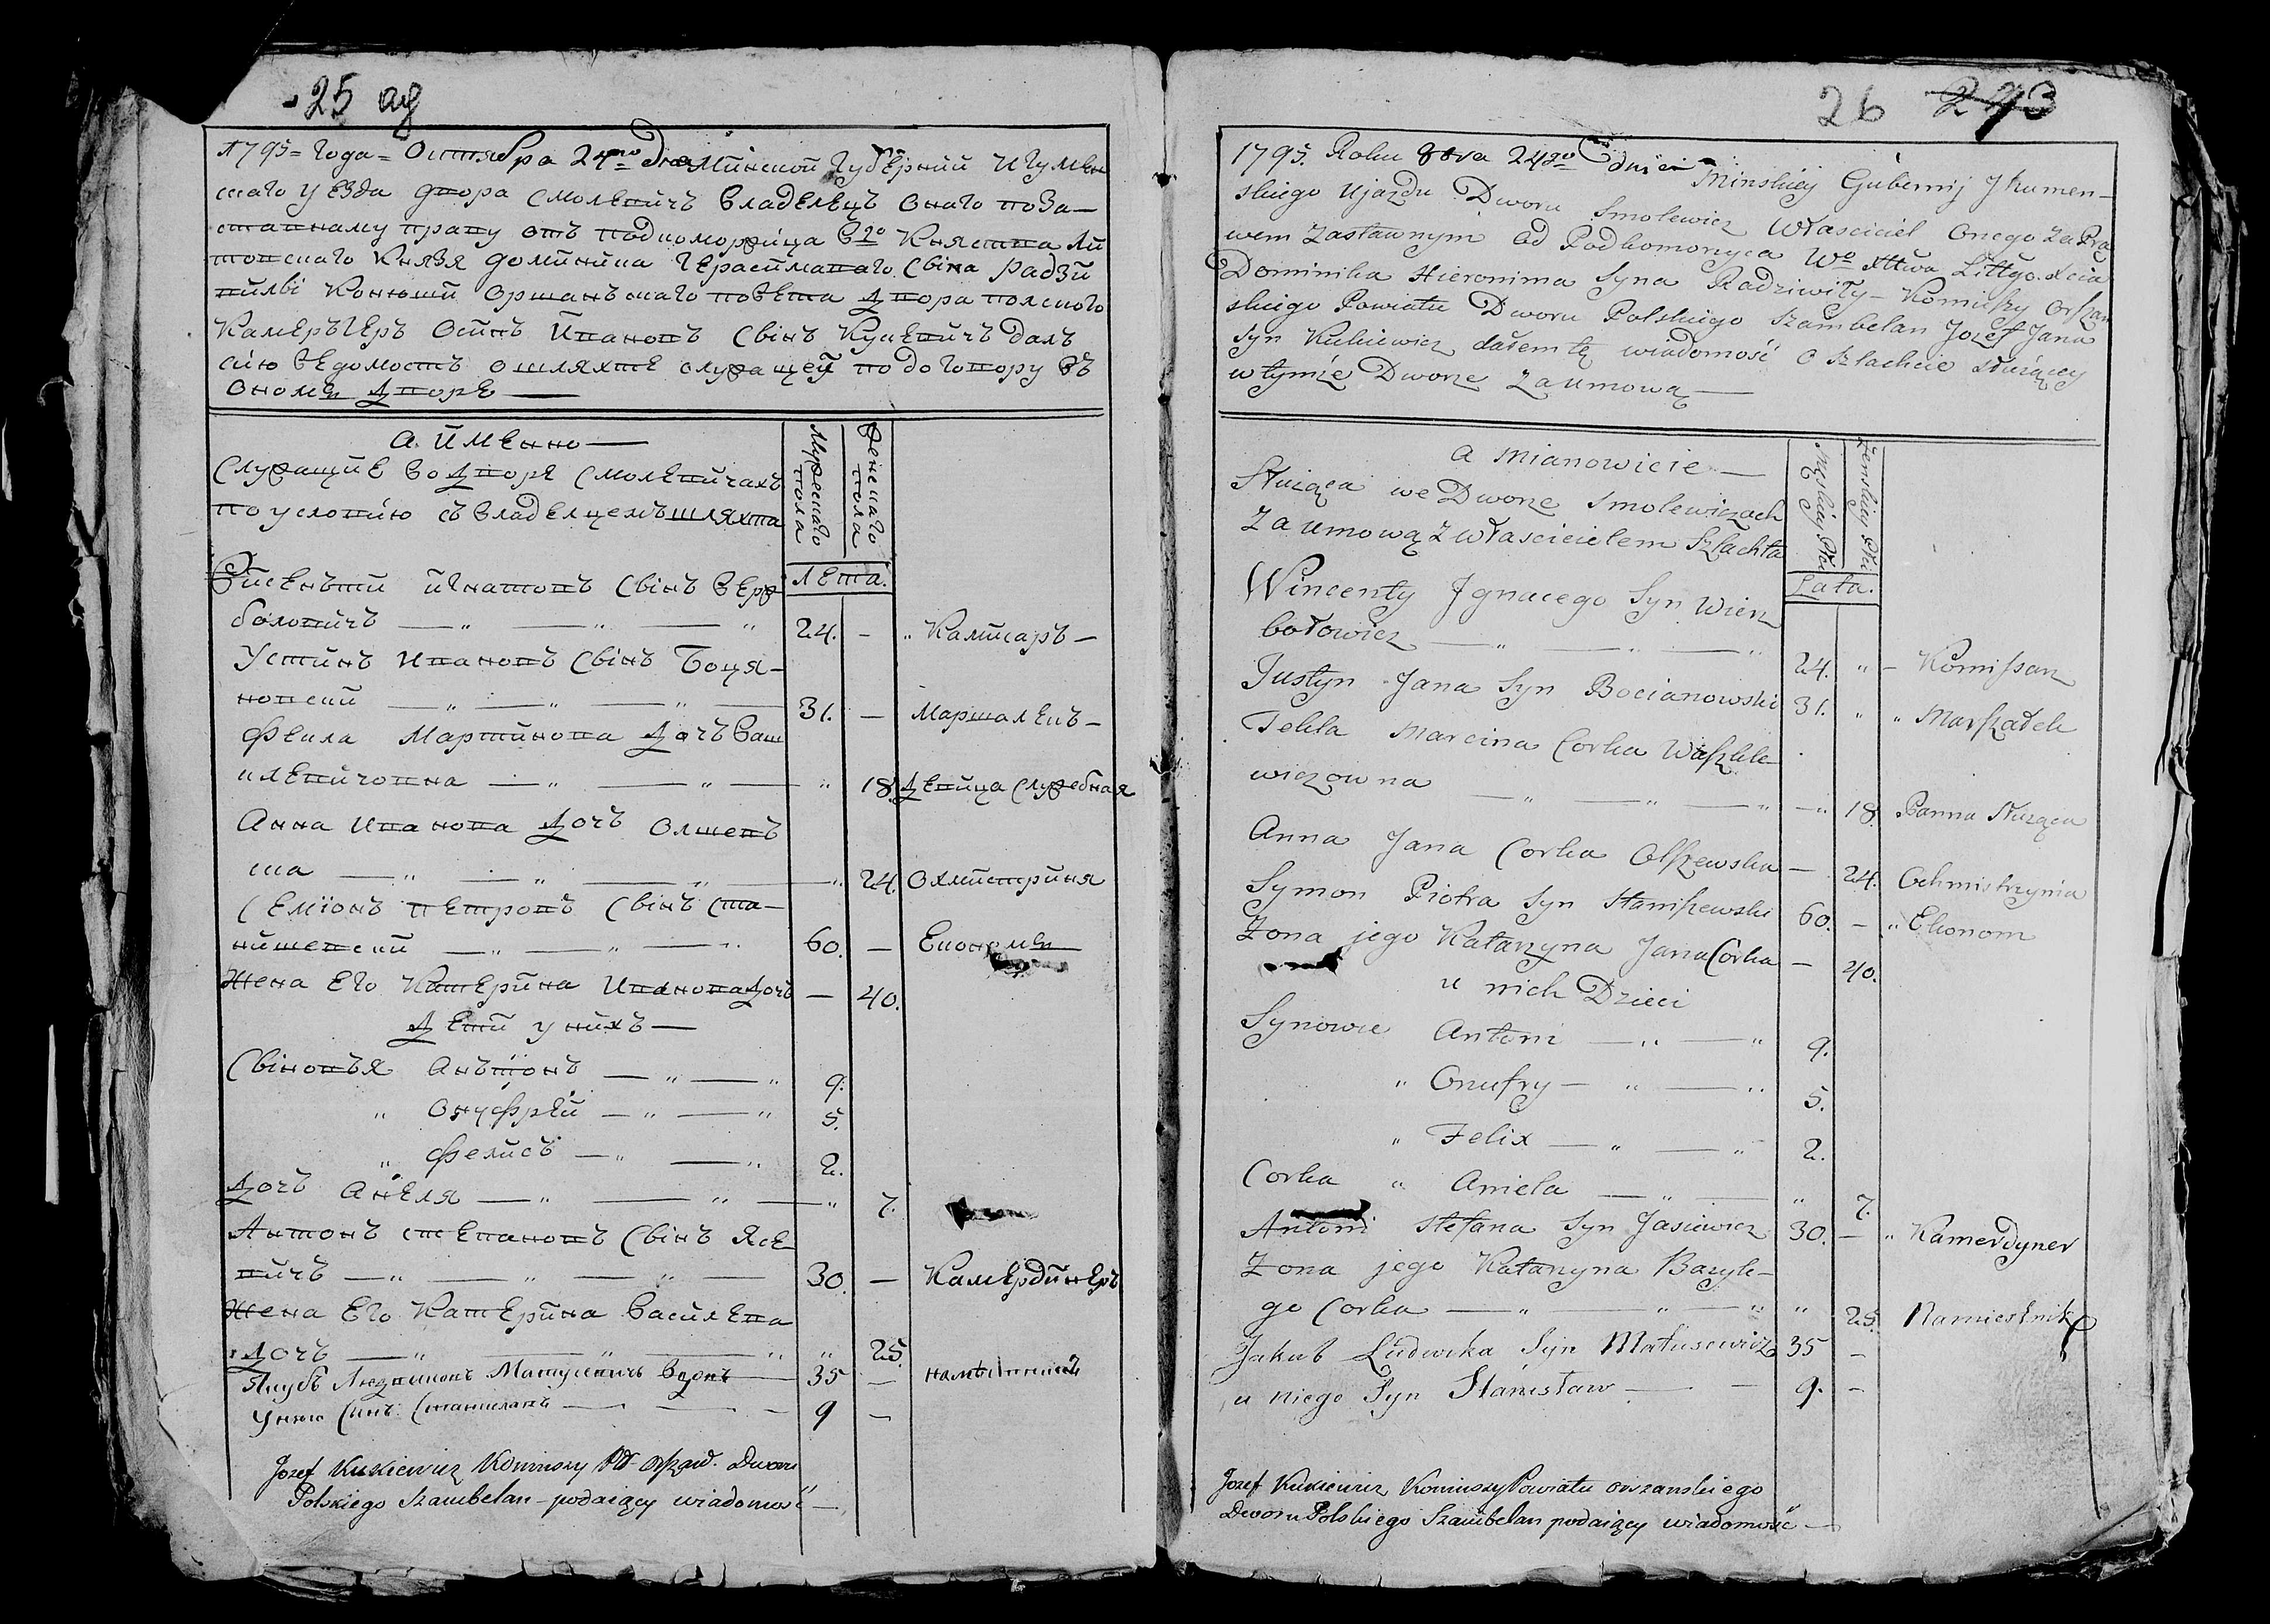 25 об
1795 = Года = Октября 24го Дня Минской Губерний Игумен
скаго уезда двора Смолевичъ владелецъ онаго поза-
ставному праву отъ подкоморжица В го Княства Ли
товскаго Князя доминика Иерасимаваго Сына Радзи
вилы Конюши Оршанъскаго повета Двора полского
Камеръгеръ Осипъ Ивановъ Сынъ Кукевичъ далъ
сию ведомость ошляхте служащей подоговору въ
ономъ Дворе —
а Именно —
Служащие во Дворе Смолевичахъ
по условию съ владелцемъ шляхта
Мужескаго пола
Женскаго пола
лета.
Висеньти игнатовъ Сынъ Верж
боловичъ — „ — „ — „ 24. — „ Камисаръ —
Устинъ Ивановъ Сынъ Боця-
новский — „ — „ — „ — 31. — Маршалекъ —
Фекла Мартинова Дочъ Ваш
клевичовна — „ — „ — „ 18. Девица Служебная
Анна Иванова Дочъ Олшевъ
ска — „ — „ — „ — „ 24. Охмистриня
Семионъ Петровъ Сынъ Ста-
нишевский — „ — „ — „ 60. — Економъ
Жена Его Катерина Иванова дочъ — 40.
Дети у нихъ —
Сыновья Анътонъ — „ — „ 9.
„ Онуфрей — „ — „ 5.
„ Фелисъ — „ — „ 2.
Дочъ Анеля — „ — „ — „ 7.
Антонъ степановъ Сынъ Ясе
вичъ — „ — „ — „ — 30. — Камердинеръ
Жена Его Катерина Василева
Дочъ — „ — „ — „ „ 25.
Якубъ Людвиковъ Матусевичъ вдовъ — 35 — наместникъ
У него Синъ Станиславъ — — — 9 —
Jozef Kukiewicz Koniuszy Ptt Orszań. Dworu
Polskiego Szambelan – podaiący wiadomość —
26 293
1795. Roku 8bra 24go dnia Minskiey Gubernij Jhumen-
skiego Ujazdu Dworu Smolewicz Własciciel onego za Pra
wem Zastawnym od Podkomorzyca Wo Xttwa Littgo. Xcia
Dominika Hieronima Syna Radziwiły – Koniuszy Orszan
skiego Powiatu Dworu Polskiego Szambelan Jozef Jana
Syn Kukiewicz dałem tę wiadomość o Szlachcie służącey
w tymże Dworze za umową —
a mianowicie —
Służąca we Dworze Smolewiczach
za umową z włascicielem Szlachta
Męskiey Płci
Żenskiey Płci
Lata.
Wincenty Jgnacego Syn Wierz
bołowicz — „ — „ — „ 24. „ – Komissarz
Justyn Jana Syn Bocianowski 31. „ „ Marszałek
Tekla Marcina Corka Waszkle-
wiczowna — „ — „ — „ — „ 18. Panna Służąca
Anna Jana Corka Olszewska — 24. Ochmistrzynia
Symon Piotra Syn Staniszewski 60. — „ Ekonom
Zona jego Katarzyna Jana Corka — 40.
u nich Dzieci
Synowie Antoni — „ — „ 9.
„ Onufry — „ — „ 5.
„ Felix — „ — „ 2.
Corka „ Aniela — „ — „ 7.
Antoni Stefana Syn Jasiewicz 30. — „ Kamerdyner
Zona jego Katarzyna Bazyle-
go Corka — „ — „ — „ „ 25.
Jakub Ludwika Syn Matusewicz 35 — Namiestnik
u niego Syn Stanisław — — 9. —
Jozef Kukiewicz Koniuszy Powiatu orszanskiego
Dworu Polskiego Szambelan podaiący wiadomość —